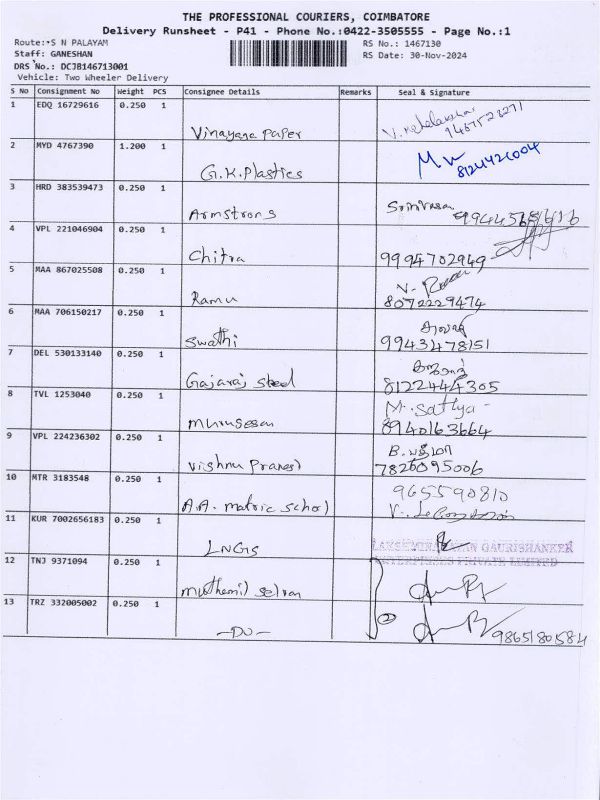 THE PROFESSIONAL COURIERS, COIMBATORE
Delivery Runsheet - P41 - Phone No.:0422-3505555 - Page No.:1
Route: S N PALAYAM
RS No.: 1467130
Staff: GANESHAN
RS Date: 30-Nov-2024
DRS No.: DCJB146713001
Vehicle: Two Wheeler Delivery
S No Consignment No Weight PCS Consignee Details Remarks Seal & Signature
1 EDQ 16729616 0.250 1
Vinayaga Paper
2 MYD 4767390 1.200 1
G.K.Plastics 8124426004
3 HRD 383539473 0.250 1
Armstrong Srinivasan
4 VPL 221046904 0.250 1
Chitra 9994702949
5 MAA 867025508 0.250 1
Ramu 8072229474
6 MAA 706150217 0.250 1
Swathi 9943478151
7 DEL 530133140 0.250 1
Gajaraj steel 8122444305
8 TVL 1253040 0.250 1
M. Sathya
Murugesan 8940163664
9 VPL 224236302 0.250 1
Vishnu 7826095006
10 MTR 3183548 0.250 1
965590810
A.A. matric school
11 KUR 7002656183 0.250 1
LNGIS GAURISHANKER
PRIVATE LIMITED
12 TNJ 9371094 0.250 1
Muthamil selvan
13 TRZ 332005002 0.250 1
2
-DO- 9865180584